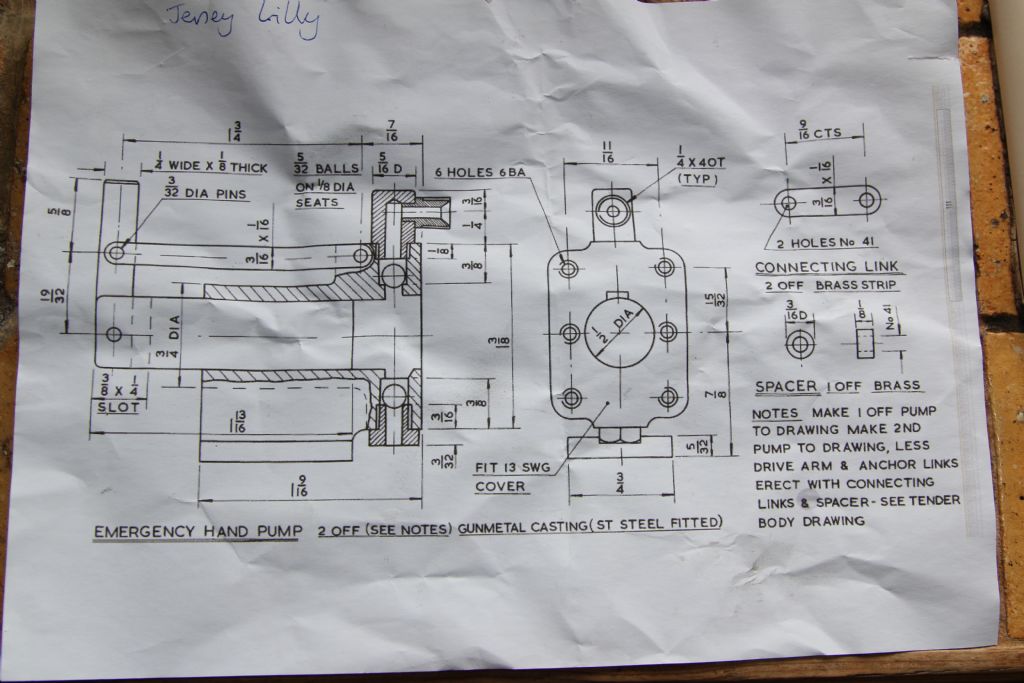 Jersey Lilly
1 3/4
7/16
1/4 WIDE X 1/8 THICK
3/32 DIA PINS
5/32 BALLS
ON 1/8 DIA
SEATS
5/16 D
6 HOLES 6BA
11/16
1/4 X 40T
(TYP)
9/16 CTS
3/16 X 1/16
2 HOLES No 41
CONNECTING LINK
2 OFF BRASS STRIP
5/8
3/16 X 1/16
3/16
1/4
1/8
3/8
19/32
3/4 DIA
3 1/8
1/2 DIA
15/32
3/16 D
1/8
No 41
3/8 X 1/4
SLOT
1 13/16
3/16
3/8
3/32
7/8
5/32
SPACER 1 OFF BRASS
FIT 13 SWG
COVER
3/4
1 9/16
NOTES MAKE 1 OFF PUMP
TO DRAWING MAKE 2ND
PUMP TO DRAWING, LESS
DRIVE ARM & ANCHOR LINKS
ERECT WITH CONNECTING
LINKS & SPACER - SEE TENDER
BODY DRAWING
EMERGENCY HAND PUMP 2 OFF (SEE NOTES) GUNMETAL CASTING (ST STEEL FITTED)